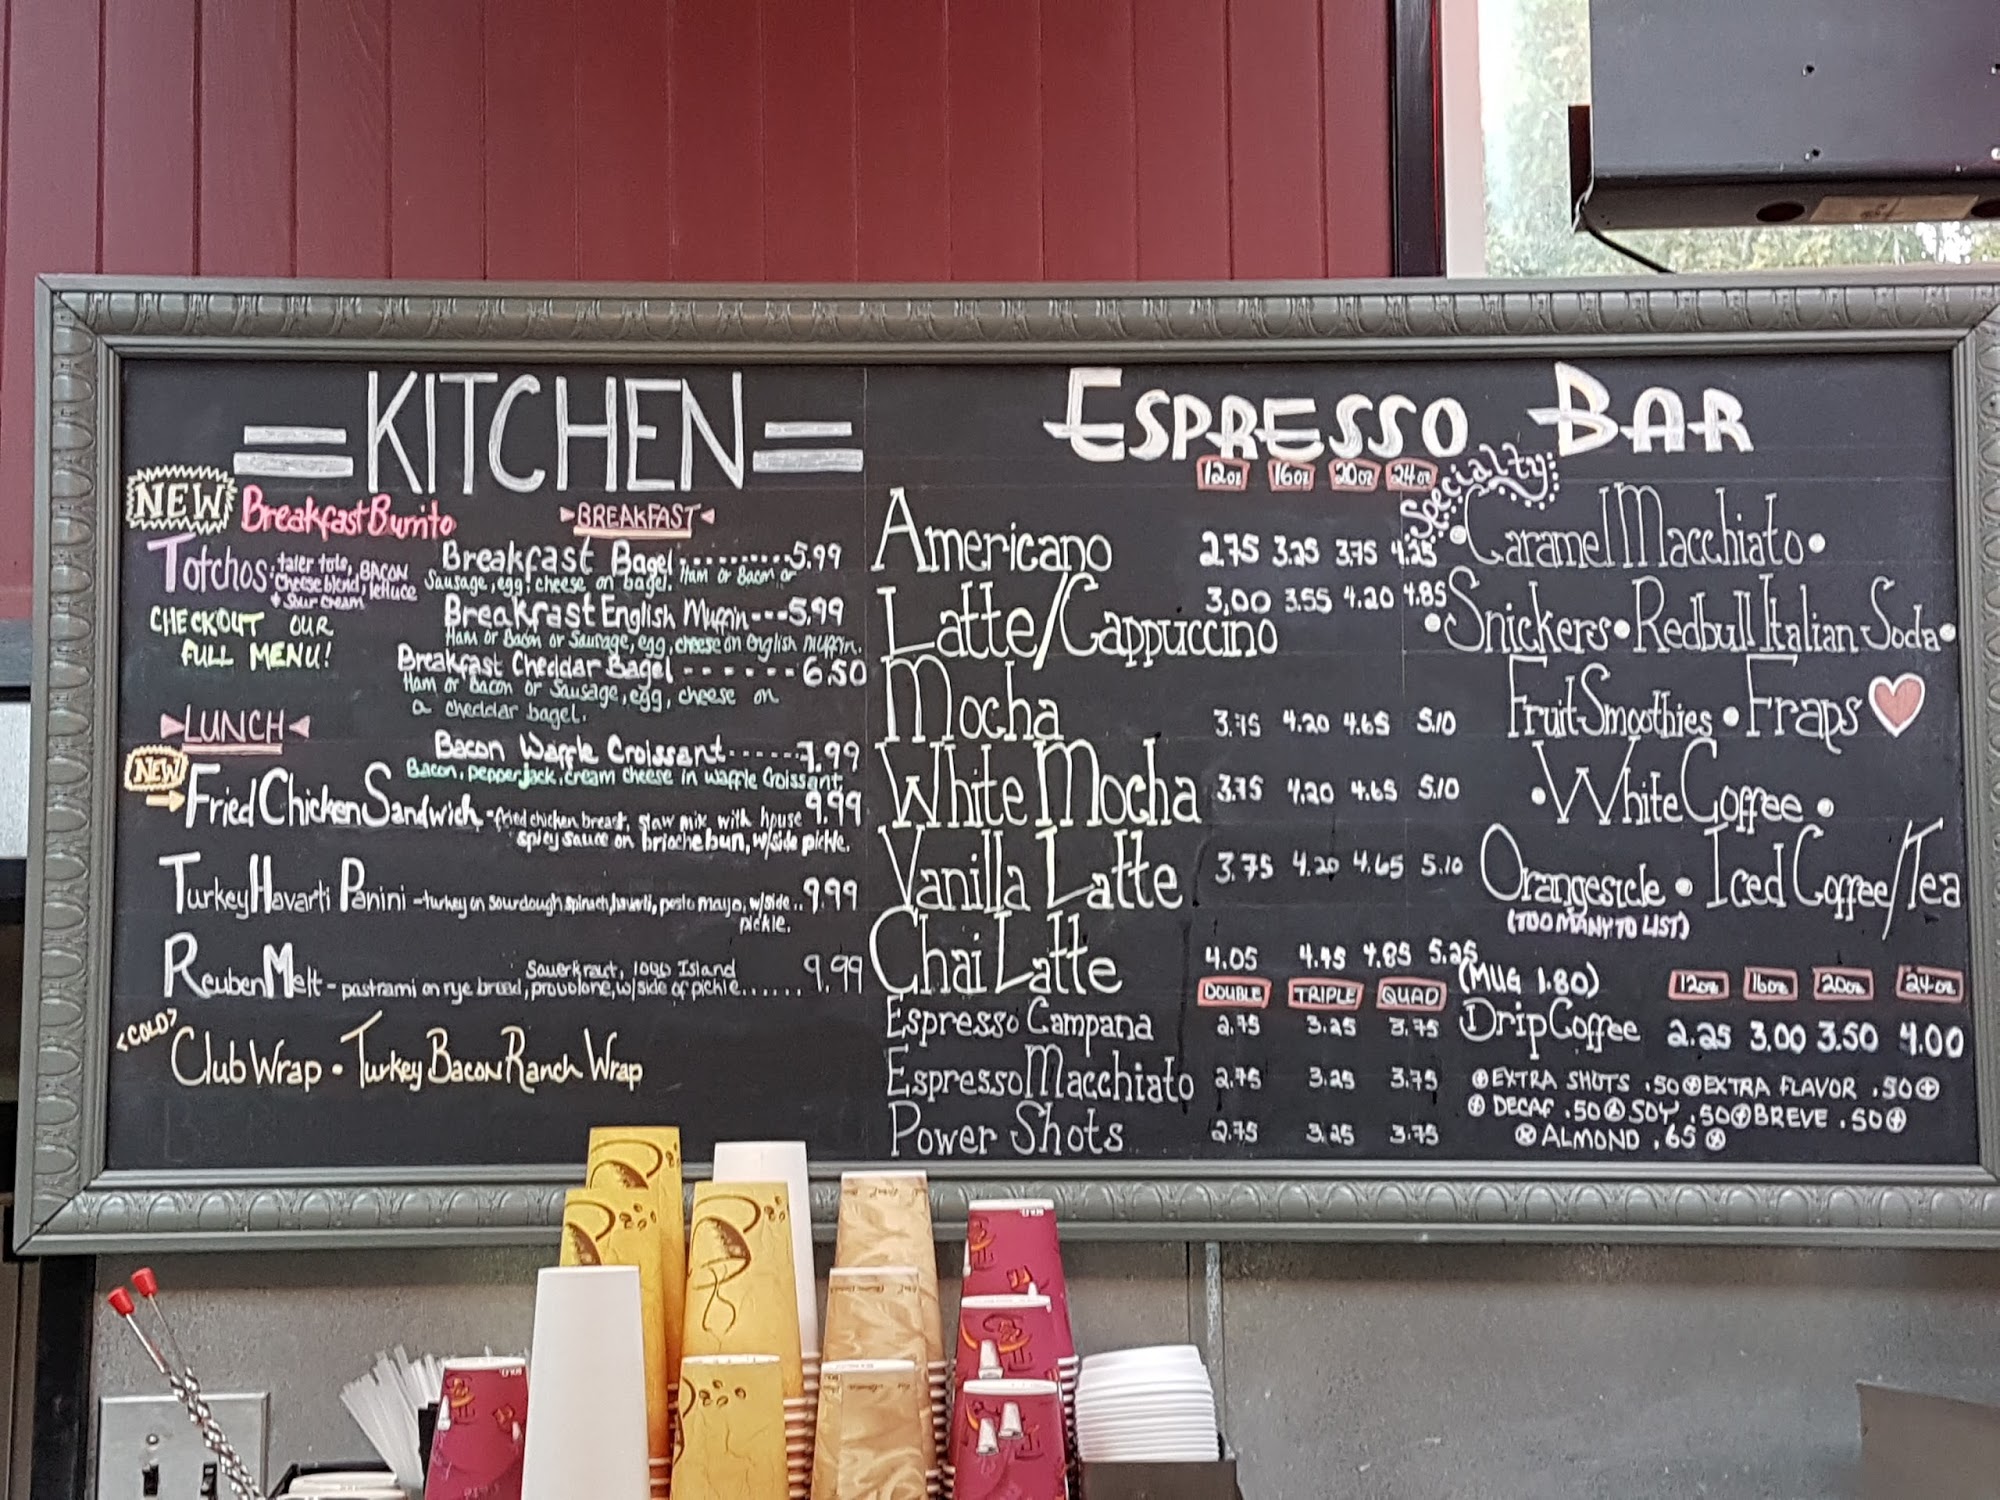 KITCHEN
NEW Breakfast Burrito
Totchos: tater tots, BACON
cheese blend, lettuce
+ sour cream
CHECKOUT OUR
FULL MENU!
BREAKFAST
Breakfast Bagel 5.99
Sausage, egg, cheese on bagel. Ham or Bacon or
Breakfast English Muffin 5.99
Ham or Bacon or Sausage, egg, cheese on English muffin.
Breakfast Cheddar Bagel 6.50
Ham or bacon or Sausage, egg, cheese on
a cheddar bagel.
Bacon Waffle Croissant 7.99
Bacon, pepperjack, cream cheese in waffle Croissant
LUNCH
NEW
Fried Chicken Sandwich - fried chicken breast, slaw mix with house 9.99
spicy sauce on brioche bun, w/side pickle.
Turkey Havarti Panini - turkey on sourdough spinach, havarti, pesto mayo, w/side .. 9.99
pickle.
Sauerkraut, 1000 Island
Reuben Melt - pastrami on rye bread, provolone, w/side of pickle...... 9.99
<COLD>
Club Wrap • Turkey Bacon Ranch Wrap
ESPRESSO BAR
12oz 16oz 20oz 24oz
Americano 2.75 3.25 3.75 4.25
Latte/Cappuccino 3.00 3.55 4.20 4.85
Mocha 3.75 4.20 4.65 5.10
White Mocha 3.75 4.20 4.65 5.10
Vanilla Latte 3.75 4.20 4.65 5.10
Chai Latte 4.05 4.45 4.85 5.25
DOUBLE TRIPLE QUAD
Espresso Campana 2.75 3.25 3.75
Espresso Macchiato 2.75 3.25 3.75
Power Shots 2.75 3.25 3.75
Specialty
• Caramel Macchiato •
• Snickers • Redbull Italian Soda •
Fruit Smoothies • Fraps
• White Coffee •
Orangesicle • Iced Coffee/Tea
(TOO MANY TO LIST)
(MUG 1.80) 12oz 16oz 20oz 24oz
Drip Coffee 2.25 3.00 3.50 4.00
EXTRA SHOTS .50 EXTRA FLAVOR .50
DECAF .50 SOY .50 BREVE .50
ALMOND .65